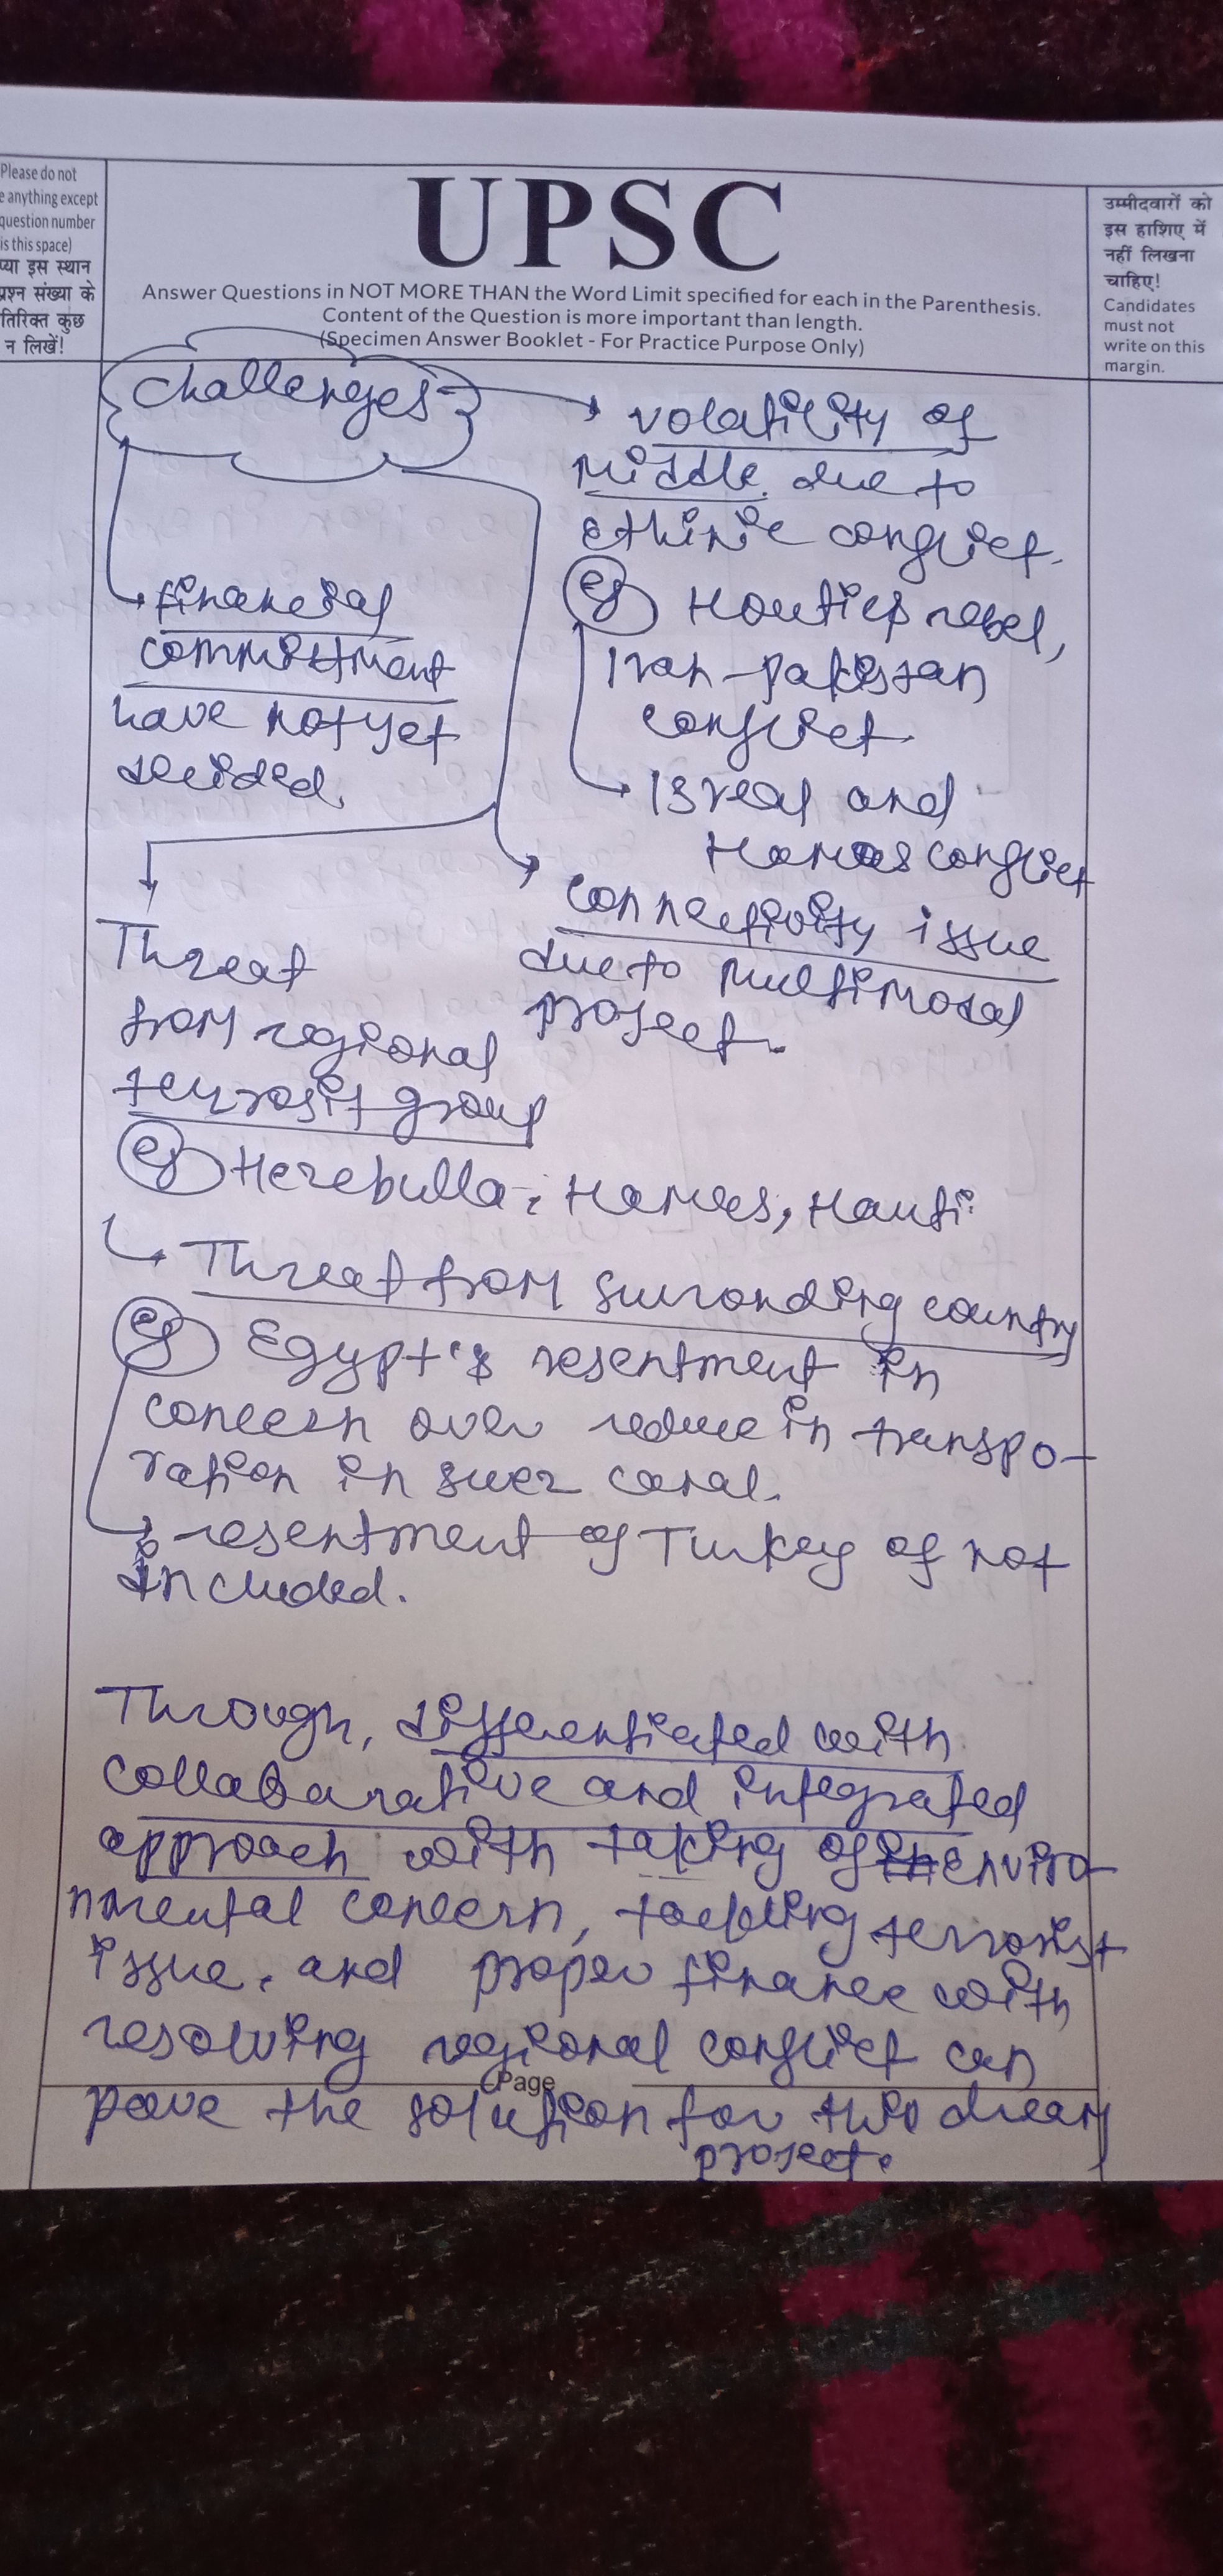 Please do not
e anything except
question number
is this space)
प्या इस स्थान
प्रश्न संख्या के
तिरिक्त कुछ
न लिखें!
UPSC
Answer Questions in NOT MORE THAN the Word Limit specified for each in the Parenthesis.
Content of the Question is more important than length.
(Specimen Answer Booklet - For Practice Purpose Only)
उम्मीदवारों को
इस हाशिए में
नहीं लिखना
चाहिए!
Candidates
must not
write on this
margin.
Challenges
volatility of
middle due to
ethinic conflict.
eg Houties rebel,
Iran-pakistan
conflict.
Isreal and
Hamas conflict
financial
commitment
have not yet
decided.
connectivity issue
due to multimodal
project.
Threat
from regional
terrosit group
eg Hezebulla, Hamas, Hauti
Threat from surronding country
eg Egypt's resentment in
concern over reduce in transpo-
ration in suez canal.
resentment of Turkey of not
included.
Through, differentiated with
collabarative and integrated
approach with taking of enviro-
nmental concern, tackling terrorist
issue, and proper finance with
resolving regional conflict can
Page
pave the solution for this dream
project.